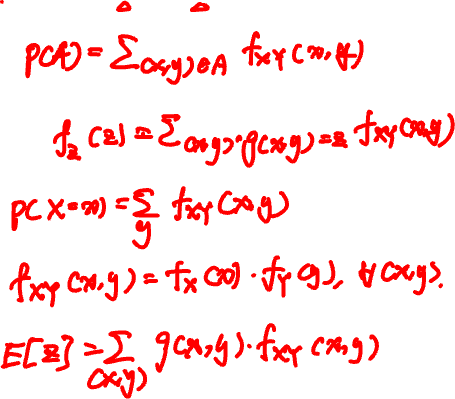 P(A) = Σ_{(x,y)∈A} f_{XY}(x,y)
f_Z(z) = Σ_{(x,y):g(x,y)=z} f_{XY}(x,y)
P(X=x) = Σ_y f_{XY}(x,y)
f_{XY}(x,y) = f_X(x)·f_Y(y), ∀(x,y).
E[Z] = Σ_{(x,y)} g(x,y)·f_{XY}(x,y)